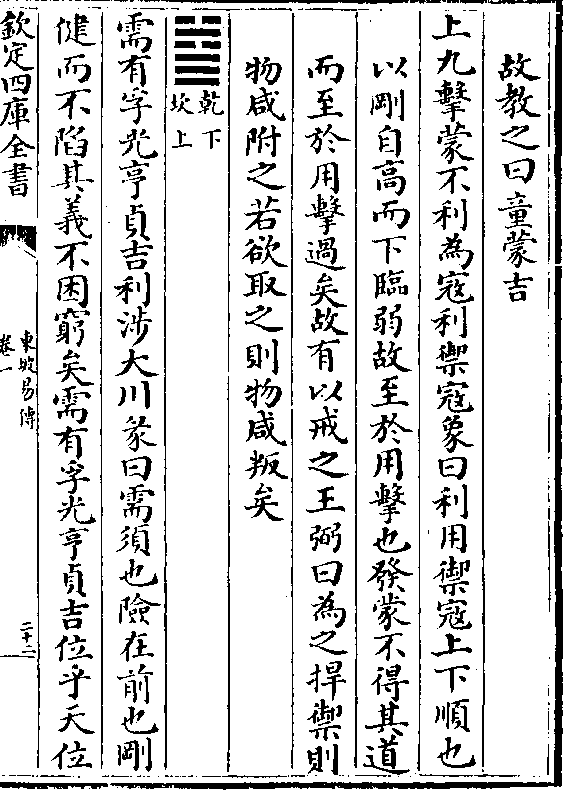 故教之曰童蒙吉
上九擊蒙不利為寇利禦寇象曰利用禦寇上下順也
以剛自高而下臨弱故至於用擊也發蒙不得其道
而至於用擊過矣故有以戒之王弼曰為之捍禦則
物咸附之若欲取之則物咸叛矣
乾下
坎上
需有孚光亨貞吉利涉大川彖曰需須也險在前也剛
健而不陷其義不困窮矣需有孚光亨貞吉位乎天位
欽定四庫全書
東坡易傳
卷一
二十二